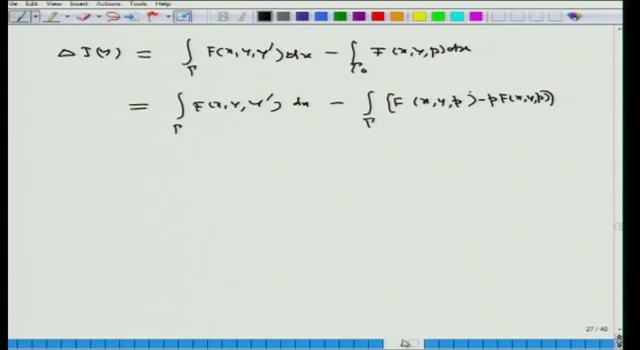 File View Insert Actions Tools Help
Δ J(Y) = ∫_Γ F(x,Y,Y')dx − ∫_Γ₀ F(x,Y,p)dx
= ∫_Γ F(x,Y,Y') dx − ∫_Γ [F (x,Y,p) − p F(x,Y,p)]
27 / 40